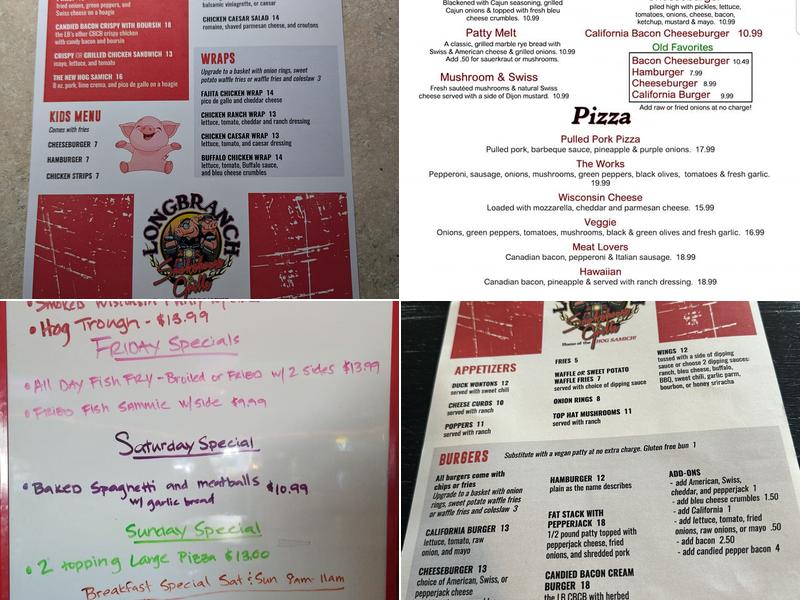 fried onions, peppers, and
Swiss cheese on a hoagie
CANDIED BACON CRISPY WITH BOURSIN 18
the LB's other CBCB crispy chicken
with candy bacon and boursin
CRISPY OR GRILLED CHICKEN SANDWICH 13
mayo, lettuce, and tomato
THE NEW HOG SAMICH 16
8 oz. pork, lime crema, and pico de gallo on a hoagie
KIDS MENU
Comes with fries
CHEESEBURGER 7
HAMBURGER 7
CHICKEN STRIPS 7
balsamic vinaigrette, or caesar
CHICKEN CAESAR SALAD 14
romaine, shaved parmesan cheese, and croutons
WRAPS
Upgrade to a basket with onion rings, sweet
potato waffle fries or waffle fries and coleslaw 3
FAJITA CHICKEN WRAP 14
pico de gallo and cheddar cheese
CHICKEN RANCH WRAP 13
lettuce, tomato, cheddar and ranch dressing
CHICKEN CAESAR WRAP 13
lettuce, tomato, and caesar dressing
BUFFALO CHICKEN WRAP 14
lettuce, tomato, Buffalo sauce,
and bleu cheese crumbles
LONGBRANCH
Saloon
Grille
Blackened with Cajun seasoning, grilled
Cajun onions & topped with fresh bleu
cheese crumbles. 10.99
Patty Melt
A classic, grilled marble rye bread with
Swiss & American cheese & grilled onions. 10.99
Add .50 for sauerkraut or mushrooms.
Mushroom & Swiss
Fresh sautéed mushrooms & natural Swiss
cheese served with a side of Dijon mustard. 10.99
piled high with pickles, lettuce,
tomatoes, onions, cheese, bacon,
ketchup, mustard & mayo. 10.99
California Bacon Cheeseburger 10.99
Old Favorites
Bacon Cheeseburger 10.49
Hamburger 7.99
Cheeseburger 8.99
California Burger 9.99
Add raw or fried onions at no charge!
Pizza
Pulled Pork Pizza
Pulled pork, barbeque sauce, pineapple & purple onions. 17.99
The Works
Pepperoni, sausage, onions, mushrooms, green peppers, black olives, tomatoes & fresh garlic.
19.99
Wisconsin Cheese
Loaded with mozzarella, cheddar and parmesan cheese. 15.99
Veggie
Onions, green peppers, tomatoes, mushrooms, black & green olives and fresh garlic. 16.99
Meat Lovers
Canadian bacon, pepperoni & Italian sausage. 18.99
Hawaiian
Canadian bacon, pineapple & served with ranch dressing. 18.99
Smoked Wisconsin
• Hog Trough - $13.99
FRIDAY Specials
• All DAY Fish FRY - Broiled or FRIED w/ 2 Sides $13.99
• FRIED Fish Sammie w/side $9.99
Saturday Special
• BAKED Spaghetti and meatballs $10.99
w/ garlic bread
Sunday Special
• 2 topping Large Pizza $13.00
Breakfast Special Sat & Sun 9am-11am
Grille
Home of the HOG SAMICH!
APPETIZERS
DUCK WONTONS 12
served with sweet chili
CHEESE CURDS 10
served with ranch
POPPERS 11
served with ranch
FRIES 5
WAFFLE OR SWEET POTATO
WAFFLE FRIES 7
served with choice of dipping sauce
ONION RINGS 8
TOP HAT MUSHROOMS 11
served with ranch
WINGS 12
tossed with a side of dipping
sauce or choose 2 dipping sauces:
ranch, bleu cheese, buffalo,
BBQ, sweet chili, garlic parm,
bourbon, or honey sriracha
BURGERS Substitute with a vegan patty at no extra charge. Gluten free bun 1
All burgers come with
chips or fries
Upgrade to a basket with onion
rings, sweet potato waffle fries
or waffle fries and coleslaw 3
CALIFORNIA BURGER 13
lettuce, tomato, raw
onion, and mayo
CHEESEBURGER 13
choice of American, Swiss, or
pepperjack cheese
HAMBURGER 12
plain as the name describes
FAT STACK WITH
PEPPERJACK 18
1/2 pound patty topped with
pepperjack cheese, fried
onions, and shredded pork
CANDIED BACON CREAM
BURGER 18
the LB CBCB with herbed
ADD-ONS
- add American, Swiss,
cheddar, and pepperjack 1
- add bleu cheese crumbles 1.50
- add California 1
- add lettuce, tomato, fried
onions, raw onions, or mayo .50
- add bacon 2.50
- add candied pepper bacon 4